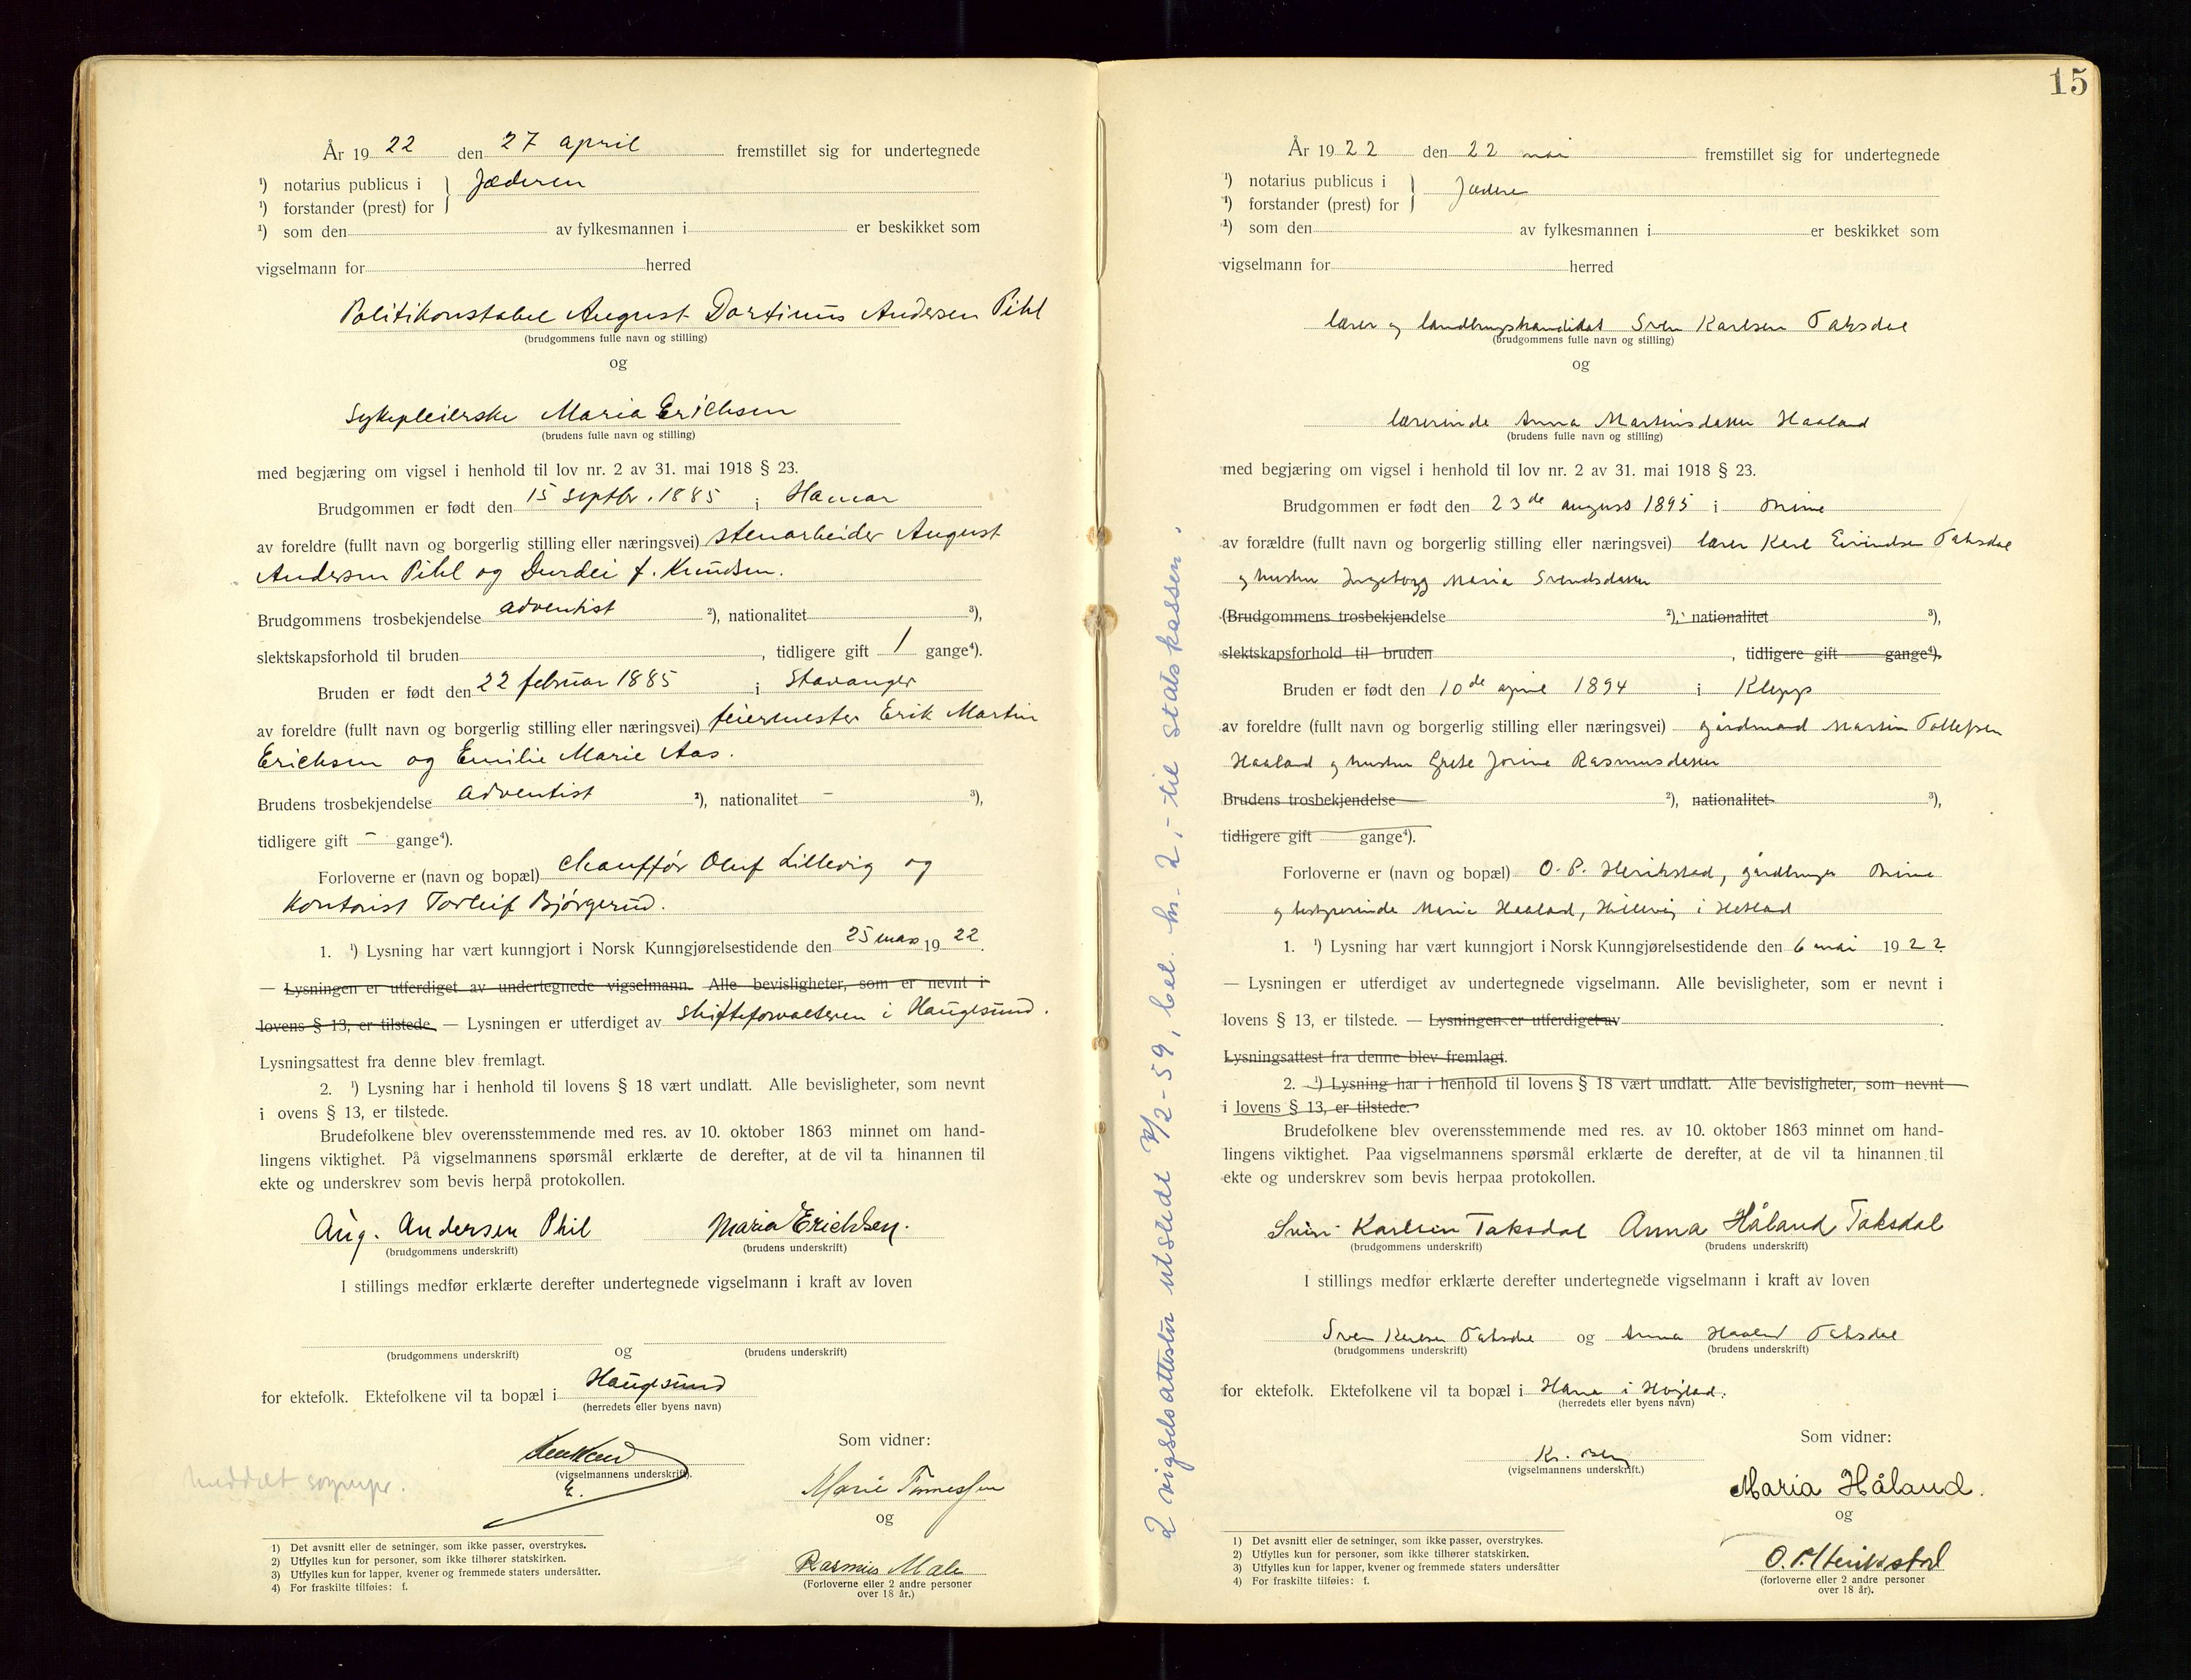 År 19 22 den 27 april fremstillet sig for undertegnede
¹) notarius publicus i } Jæderen
¹) forstander (prest) for
¹) som den av fylkesmannen i er beskikket som
vigselmann for herred
Politikonstabel August Dortinus Andersen Pihl
(brudgommens fulle navn og stilling)
og
Sykepleierske Maria Erichsen
(brudens fulle navn og stilling)
med begjæring om vigsel i henhold til lov nr. 2 av 31. mai 1918 § 23.
Brudgommen er født den 15 septbr. 1885 i Hamar
av foreldre (fullt navn og borgerlig stilling eller næringsvei) stenarbeider August
Andersen Pihl og Durdei f. Knudsen.
Brudgommens trosbekjendelse adventist ²), nationalitet ³),
slektskapsforhold til bruden , tidligere gift 1 gange⁴).
Bruden er født den 22 februar 1885 i Stavanger
av foreldre (fullt navn og borgerlig stilling eller næringsvei) feiermester Erik Martin
Erichsen og Emilie Marie Aas.
Brudens trosbekjendelse adventist ²), nationalitet - ³),
tidligere gift - gange⁴).
Forloverne er (navn og bopæl) chauffør Oluf Lillevig og
Kontorist Torleif Bjørgerud.
1. ¹) Lysning har vært kunngjort i Norsk Kunngjørelsestidende den 25 mars 19 22.
— Lysningen er utferdiget av undertegnede vigselmann. Alle bevisligheter, som er nevnt i
lovens § 13, er tilstede. — Lysningen er utferdiget av skifteforvalteren i Haugesund.
Lysningsattest fra denne blev fremlagt.
2. ¹) Lysning har i henhold til lovens § 18 vært undlatt. Alle bevisligheter, som nevnt
i ovens § 13, er tilstede.
Brudefolkene blev overensstemmende med res. av 10. oktober 1863 minnet om hand-
lingens viktighet. På vigselmannens spørsmål erklærte de derefter, at de vil ta hinannen til
ekte og underskrev som bevis herpå protokollen.
Aug. Andersen Phil Maria Erichsen.
(brudgommens underskrift) (brudens underskrift)
I stillings medfør erklærte derefter undertegnede vigselmann i kraft av loven
og
(brudgommens underskrift) (brudens underskrift)
for ektefolk. Ektefolkene vil ta bopæl i Haugesund
(herredets eller byens navn)
Som vidner:
(vigselmannens underskrift).
E.
meddelt sognepr.
Marie Tønnessen
og
Rasmus Male
(Forloverne eller 2 andre personer
over 18 år.)
1) Det avsnitt eller de setninger, som ikke passer, overstrykes.
2) Utfylles kun for personer, som ikke tilhører statskirken.
3) Utfylles kun for lapper, kvener og fremmede staters undersåtter.
4) For fraskilte tilføies: f.
15
År 19 22 den 22 mai fremstillet sig for undertegnede
¹) notarius publicus i } Jæderen
¹) forstander (prest) for
¹) som den av fylkesmannen i er beskikket som
vigselmann for herred
lærer og landbrukskandidat Sven Karlsen Taksdal
(brudgommens fulle navn og stilling)
og
lærerinde Anna Martinsdatter Haaland
(brudens fulle navn og stilling)
med begjæring om vigsel i henhold til lov nr. 2 av 31. mai 1918 § 23.
Brudgommen er født den 23de august 1895 i Time
av forældre (fullt navn og borgerlig stilling eller næringsvei) lærer Karl Eivindsen Taksdal
og hustru Ingeborg Maria Svendsdatter
(Brudgommens trosbekjendelse ²), nationalitet ³),
slektskapsforhold til bruden , tidligere gift gange⁴).
Bruden er født den 10de april 1894 i Klepp
av foreldre (fullt navn og borgerlig stilling eller næringsvei) gårdmand Martin Tollefsen
Haaland og hustru Grete Jorine Rasmusdatter
Brudens trosbekjendelse ²), nationalitet ³),
tidligere gift gange⁴).
Forloverne er (navn og bopæl) O. P. Herikstad, gårdbruger Time
og bestyrerinde Maria Haaland, Hillevåg i Hetland
1. ¹) Lysning har vært kunngjort i Norsk Kunngjørelsestidende den 6 mai 1922
— Lysningen er utferdiget av undertegnede vigselmann. Alle bevisligheter, som er nevnt i
lovens § 13, er tilstede. — Lysningen er utferdiget av .
Lysningsattest fra denne blev fremlagt.
2. ¹) Lysning har i henhold til lovens § 18 vært undlatt. Alle bevisligheter, som nevnt
i lovens § 13, er tilstede.
Brudefolkene blev overensstemmende med res. av 10. oktober 1863 minnet om hand-
lingens viktighet. Paa vigselmannens spørsmål erklærte de derefter, at de vil ta hinannen til
ekte og underskrev som bevis herpaa protokollen.
Sven Karlsen Taksdal Anna Håland Taksdal
(brudgommens underskrift) (brudens underskrift)
I stillings medfør erklærte derefter undertegnede vigselmann i kraft av loven
Sven Karlsen Taksdal og Anna Haaland Taksdal
(brudgommens underskrift) (brudens underskrift)
for ektefolk. Ektefolkene vil ta bopæl i Hana i Høyland.
(herredets eller byens navn)
Som vidner:
(vigselmannens underskrift.)
Maria Håland.
og
O. P. Herikstad
(forloverne eller 2 andre personer
over 18 år).
1) Det avsnitt eller de setninger, som ikke passer, overstrykes.
2) Utfylles kun for personer, som ikke tilhører statskirken.
3) Utfylles kun for lapper, kvener og fremmede staters undersåtter
4) For fraskilte tilføies: f.
2 vigselsattester utstedt /2-59, bet. kr. 2,- til statskassen.